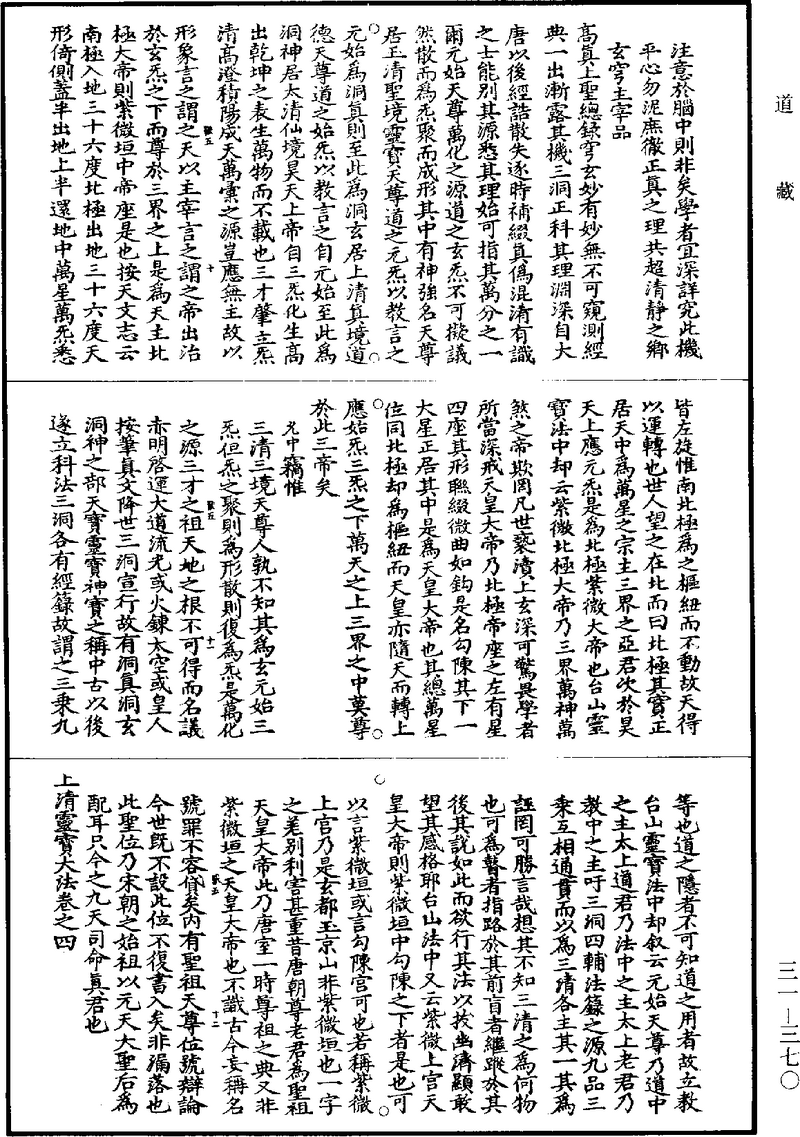 道藏
三一—三七〇
注意於腦中則非矣學者宜深詳究此機
平心勿泥庶徹正真之理共超清靜之鄉
玄穹主宰品
高真上聖總錄穹玄妙有妙無不可窺測經
典一出漸露其機三洞正科其理淵深自大
唐以後經誥散失逐時補綴真偽混淆有識
之士能別其源悉其理始可指其萬分之一
爾元始天尊萬化之源道之玄炁不可擬議
然散而為炁聚而成形其中有神強名天尊
居玉清聖境靈寶天尊道之元炁以教言之
元始為洞真則至此為洞玄居上清真境道
德天尊道之始炁以教言之自元始至此為
洞神居太清仙境昊天上帝自三炁化生高
出乾坤之表生萬物而不載也三才肇立炁
清高澄積陽成天萬彙之源豈應無主故以
形象言之謂之天以主宰言之謂之帝出治
於玄炁之下而尊於三界之上是為天主北
極大帝則紫微垣中帝座是也按天文志云
南極入地三十六度北極出地三十六度天
形倚側蓋半出地上半還地中萬星萬炁悉
皆左旋惟南北極為之樞紐而不動故天得
以運轉也世人望之在北而曰北極其實正
居天中為萬星之宗主三界之亞君次於昊
天上應元炁是為北極紫微大帝也台山靈
寶法中却云紫微北極大帝乃三界萬神萬
煞之帝欺罔凡世褻瀆上玄深可驚畏學者
所當深戒天皇大帝乃北極帝座之左有星
四座其形聯綴微曲如鈎是名勾陳其下一
大星正居其中是為天皇大帝也其總萬星
位同北極却為樞紐而天皇亦隨天而轉上
應始炁三炁之下萬天之上三界之中莫尊
於此三帝矣
允中竊惟
三清三境天尊人孰不知其為玄元始三
炁但炁之聚則為形散則復為炁是萬化
之源三才之祖天地之根不可得而名議
赤明啓運大道流光或火鍊太空或皇人
按筆真文降世三洞宣行故有洞真洞玄
洞神之部天寶靈寶神寶之稱中古以後
遂立科法三洞各有經籙故謂之三乘九
等也道之隱者不可知道之用者故立教
台山靈寶法中却叙云元始天尊乃道中
之主太上道君乃法中之主太上老君乃
教中之主吁三洞四輔法籙之源九品三
乘互相通貫而以為三清各主其一其為
誣罔可勝言哉想其不知三清之為何物
也可為瞽者指路於其前盲者繼蹤於其
後其說如此而欲行其法以拔幽濟顯敢
望其感格耶台山法中又云紫微上宮天
皇大帝則紫微垣中勾陳之下者是也可
以言紫微垣或言勾陳宮可也若稱紫微
上宮乃是玄都玉京山非紫微垣也一字
之差別利害甚重昔唐朝尊老君為聖祖
天皇大帝此乃唐室一時尊祖之典又非
紫微垣之天皇大帝也不識古今妄稱名
號罪不容貸矣內有聖祖天尊位號辯論
今世既不設此位不復書入矣非漏落也
此聖位乃宋朝之始祖以元天大聖后為
配耳只今之九天司命真君也
上清靈寶大法卷之四